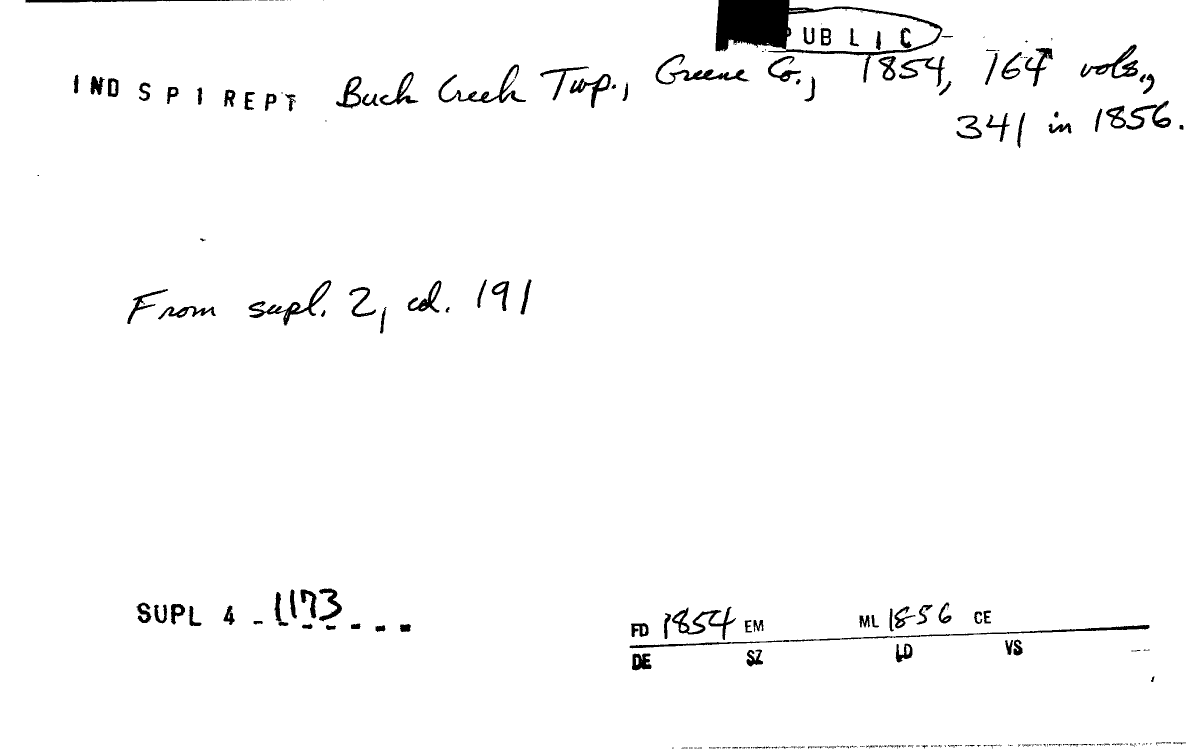 PUBLIC
IND SPI REPT Buck Creek Twp., Greene Co., 1854, 164 vols.,
341 in 1856.
From supl. 2, col. 191
SUPL 4 - 1173
FD 1854 EM ML 1856 CE
DE SZ LD VS